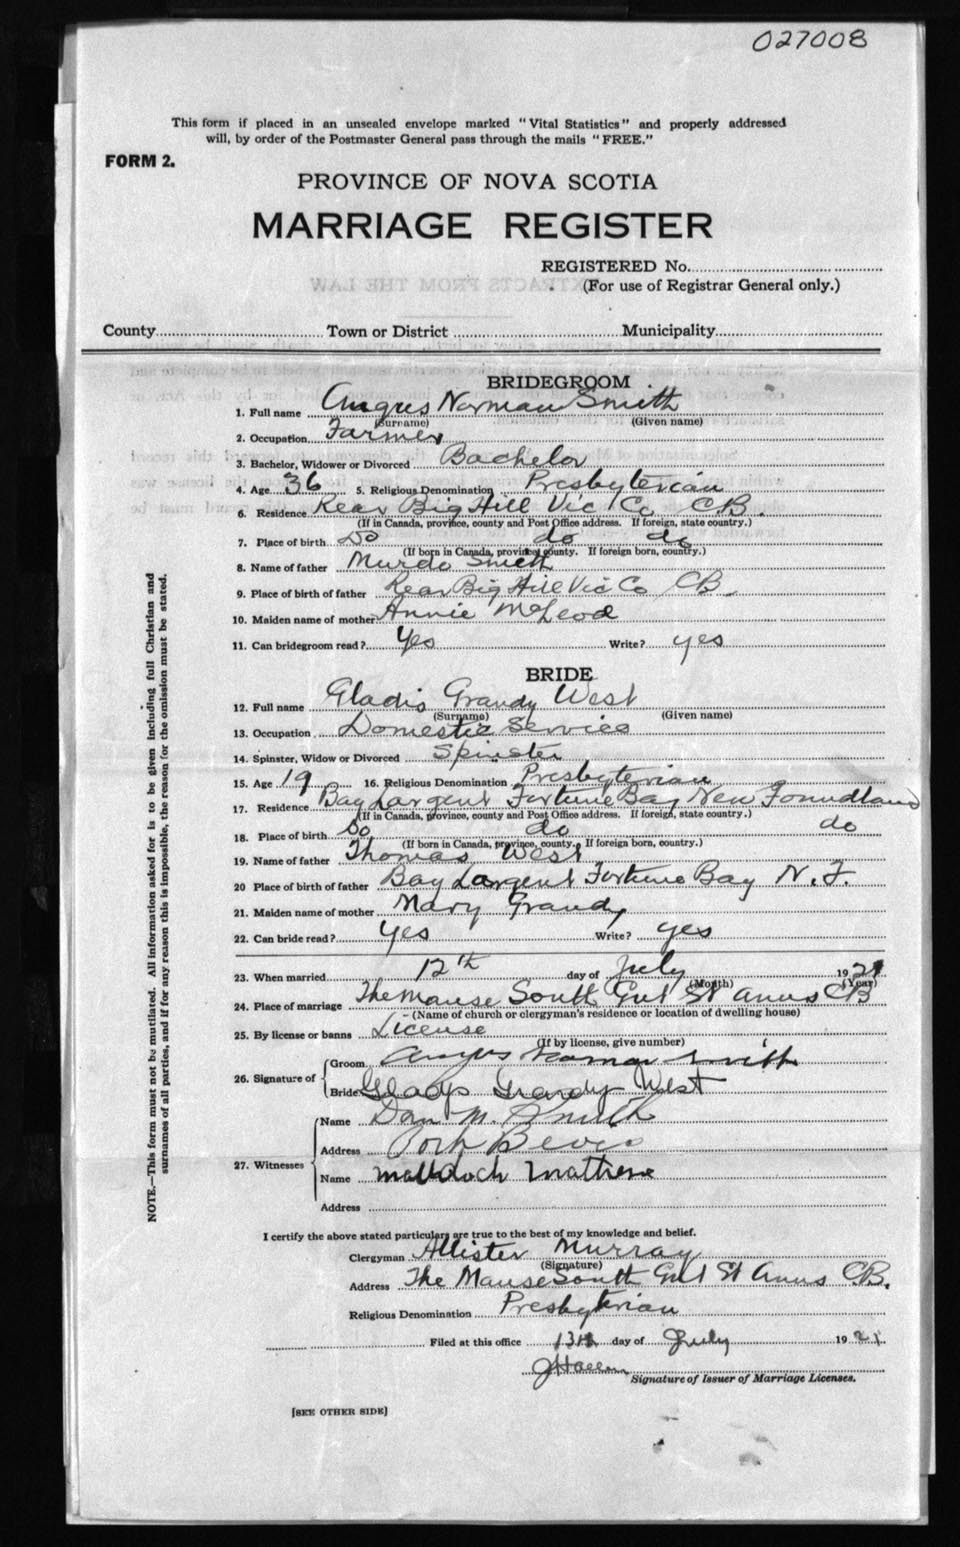 027008
This form if placed in an unsealed envelope marked "Vital Statistics" and properly addressed
will, by order of the Postmaster General pass through the mails "FREE."
FORM 2.
PROVINCE OF NOVA SCOTIA
MARRIAGE REGISTER
REGISTERED No.
(For use of Registrar General only.)
County Town or District Municipality
BRIDEGROOM
1. Full name Angus Norman Smith
(Surname) (Given name)
2. Occupation Farmer
3. Bachelor, Widower or Divorced Bachelor
4. Age 36 5. Religious Denomination Presbyterian
6. Residence Rear Big Hill Vic Co C.B.
(If in Canada, province, county and Post Office address. If foreign, state country.)
7. Place of birth Do do do
(If born in Canada, province, county. If foreign born, country.)
8. Name of father Murdo Smith
9. Place of birth of father Rear Big Hill Vic Co CB.
10. Maiden name of mother Annie McLeod
11. Can bridegroom read? Yes Write? yes
BRIDE
12. Full name Gladis Grandy West
(Surname) (Given name)
13. Occupation Domestic Service
14. Spinster, Widow or Divorced Spinster
15. Age 19 16. Religious Denomination Presbyterian
17. Residence Bay Largent Fortune Bay New Foundland
(If in Canada, province, county and Post Office address. If foreign, state country.)
18. Place of birth Do do do
(If born in Canada, province, county. If foreign born, country.)
19. Name of father Thomas West
20 Place of birth of father Bay Largent Fortune Bay N.F.
21. Maiden name of mother Mary Grandy
22. Can bride read? yes Write? yes
23. When married 12th day of July 1921
(Month) (Year)
24. Place of marriage The Manse South Gut St Anns CB
(Name of church or clergyman's residence or location of dwelling house)
25. By license or banns License
(If by license, give number)
26. Signature of Groom Angus Norman Smith
Bride Gladys Grandy West
27. Witnesses Name Dan M. Smith
Address
Name
Address
I certify the above stated particulars are true to the best of my knowledge and belief.
Clergyman Allister Murray
(Signature)
Address The Manse South Gut St Anns CB.
Religious Denomination Presbyterian
Filed at this office 13th day of July 1921
Signature of Issuer of Marriage Licenses.
[SEE OTHER SIDE]
NOTE.—This form must not be mutilated. All information asked for is to be given including full Christian and
surnames of all parties, and if for any reason this is impossible, the reason for the omission must be stated.